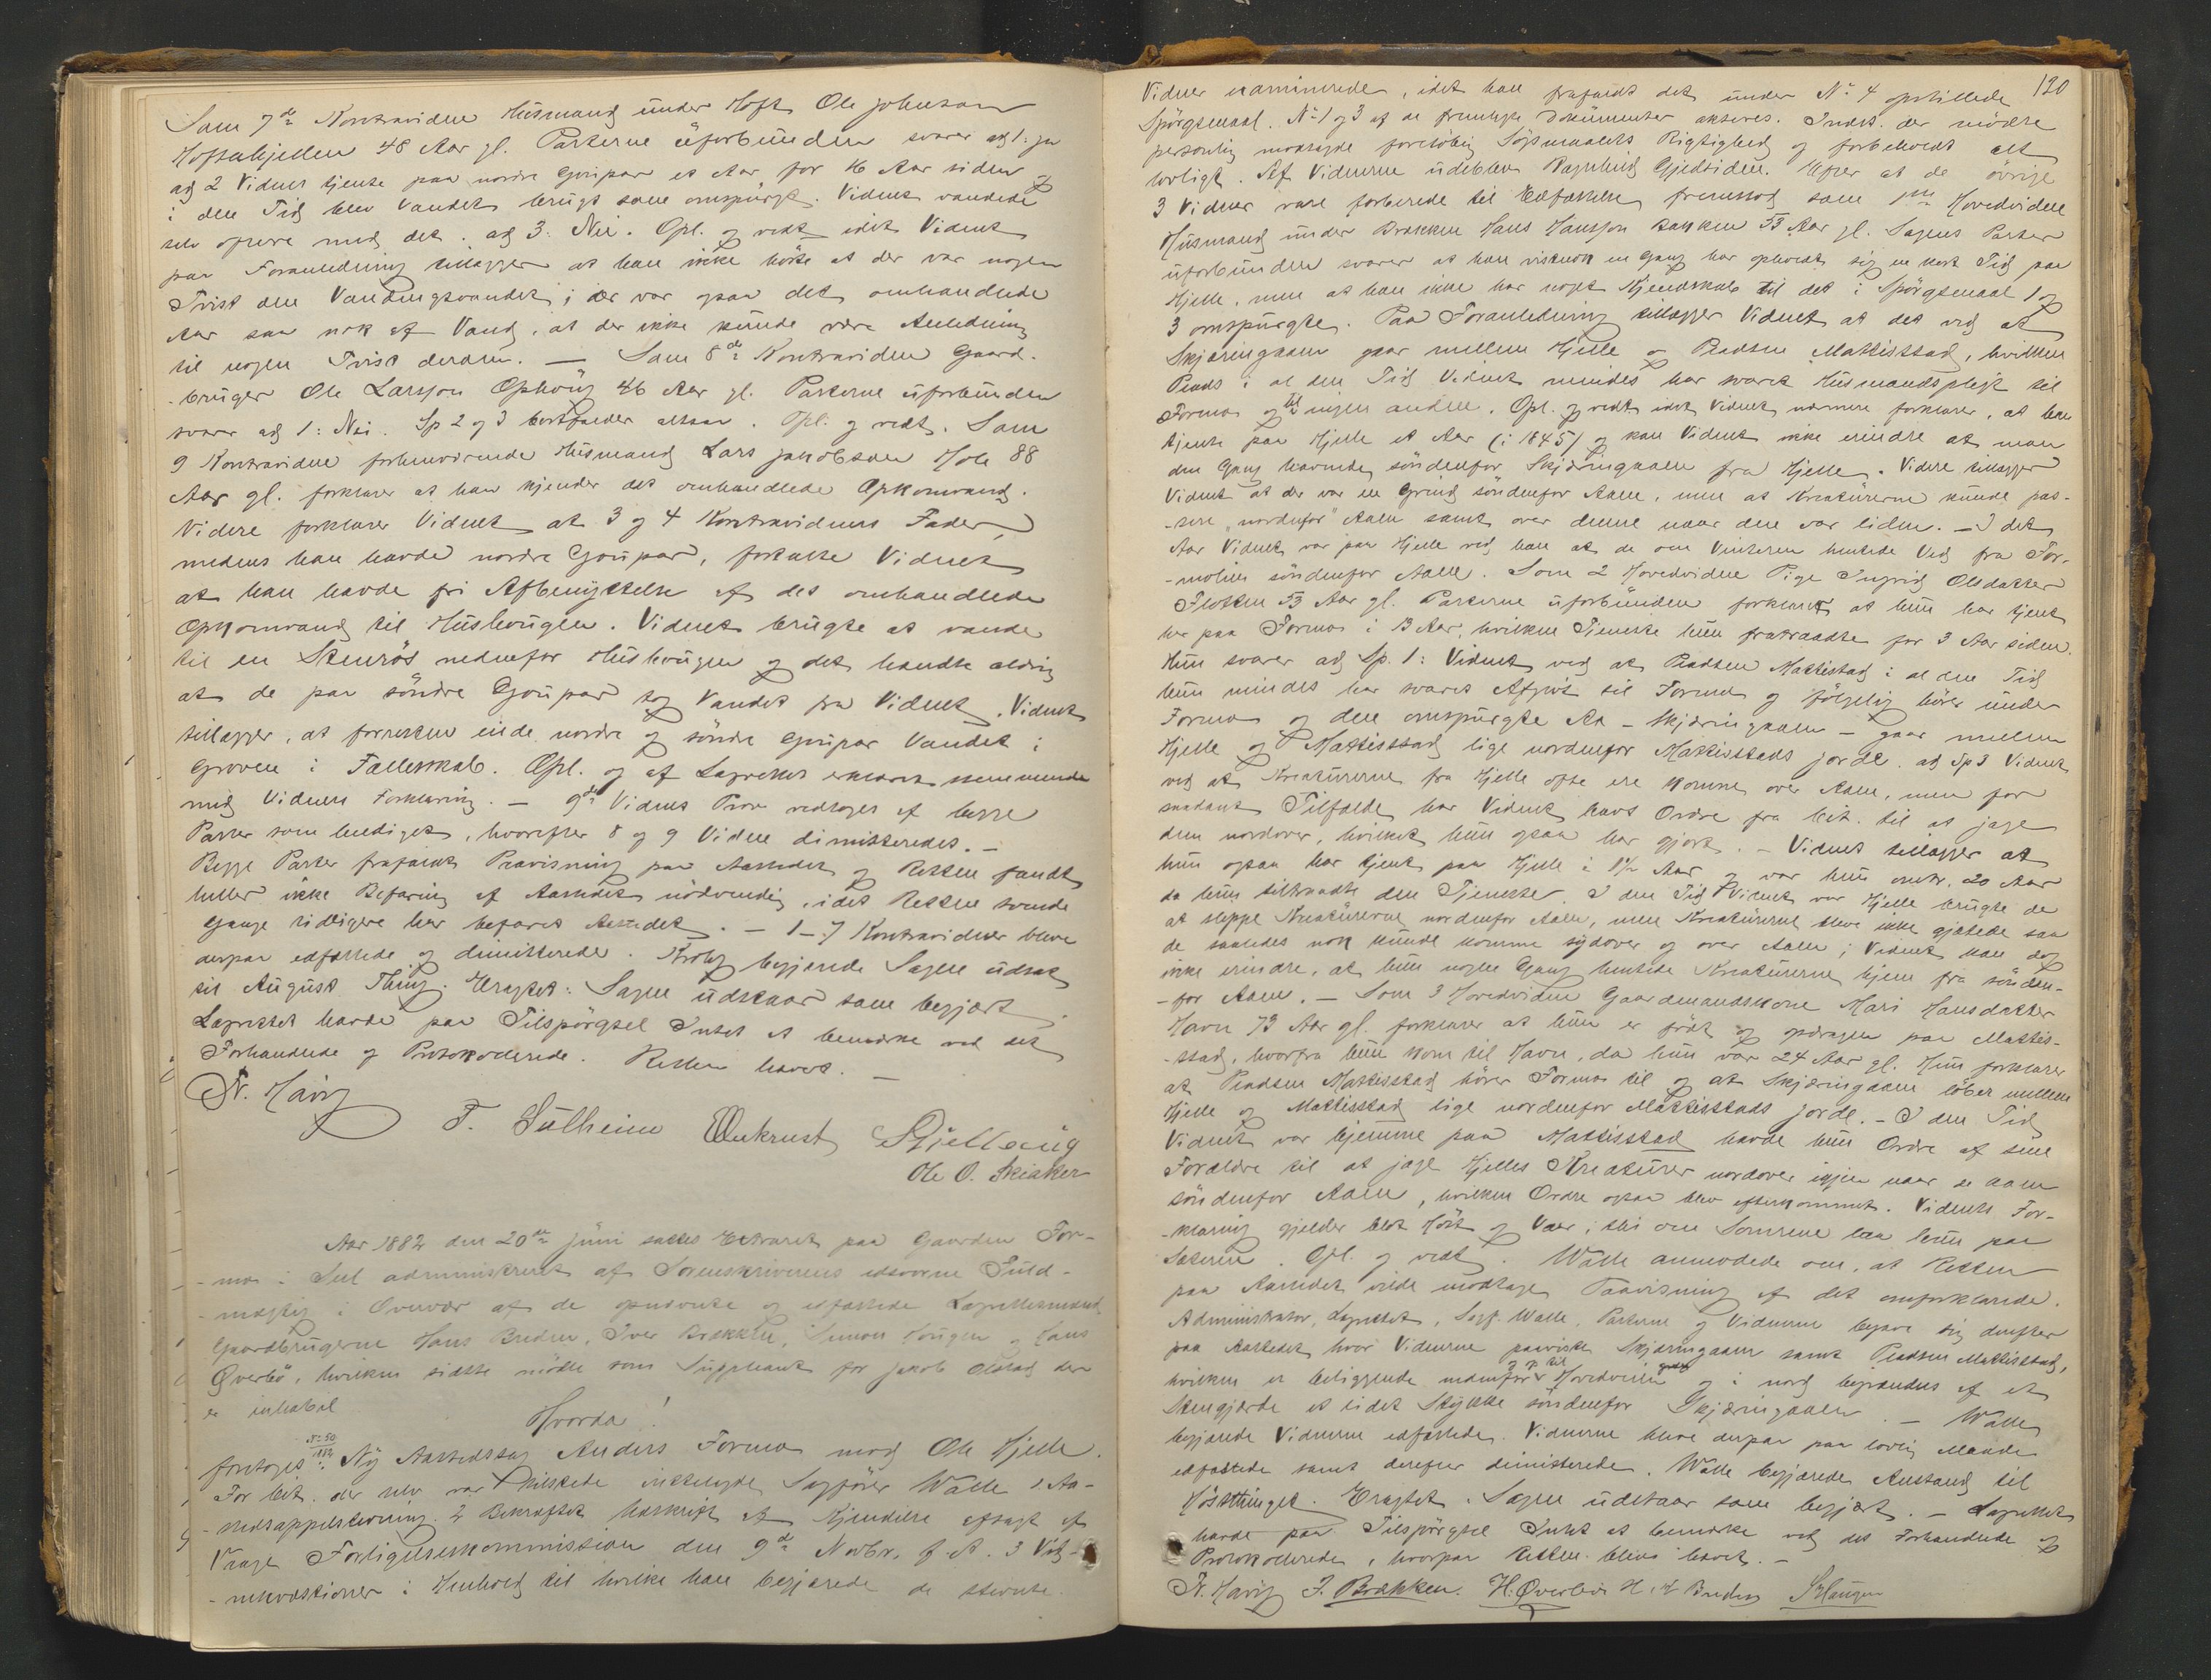 Som 7de Kontravidne Husmand under Hoft Ole Johnsen
Hoftekjellen 48 Aar gl. Parterne uforbunden svarer ad 1: ja
ad 2 Vidnet tjente paa nordre Goupar et Aar for 16 Aar siden og
i den Tid blev Vandet brugt som omspurgt. Vidnet vandede
selv med det. ad 3: Nei. Opl. og vedt. idet Vidnet
paa Foranledning tillægger at han ikke hørte at der var nogen
Tvist om Vandingsvandet; der var ogsaa det omhandlede
Aar saa nok af Vand, at der ikke kunde være Anledning
til nogen Tvist derom. — Som 8de Kontravidne Gaard-
-bruger Ole Larssøn Ophoug 46 Aar gl. Parterne uforbunden
svarer ad 1: Nei. Sp 2 og 3 bortfalder altsaa. Opl. og vedt. Som
9 Kontravidne forhenværende Husmand Lars Jakobsen Hole 88
Aar gl. forklarer at han kjender det omhandlede Opkomvand.
Videre forklarer Vidnet at 3 og 4 Kontravidners Fader,
medens han havde nordre Goupar, fortalte Vidnet
at han havde fri Afbenyttelse af det omhandlede
Opkomvand til Hushougen. Vidnet brugte at vande
til en Stenrøs nedenfor Hushougen og det hændte aldrig
at de paa søndre Goupar tog Vandet fra Vidnet. Vidnet
tillægger, at forresten eiede nordre og søndre Goupar Vandet i
Grøven i Fælleskab. Opl. og af Lagretten erklæret stemmende
med Vidnets Forklaring. — 9de Vidnes Prov vedtoges af begge
Parter som beediget, hvorefter 8 og 9 Vidne dimitteredes. —
Begge Parter frafaldt Paavisning paa Aastedet og Retten fandt
heller ikke Befaring af Aastedet nødvendig, idet Retten
Gange tidligere har befaret Aastedet. — 1-7 Kontravidner bleve
derpaa edfæstede og dimitterede. begjærede Sagen udsat
til August Thing. Eragtet: Sagen udstaar som begjært.
Lagrettet havde paa Tilspørgsel Intet at bemærke ved det
Forhandlede og Protokollerede. Retten hævet. —
Fr. Harg
T. Sulheim Unkrust Stjellaug
Ole O. Skiaker
Aar 1882 den 20de Juni sattes Extraret paa Gaarden For-
-mo i Sel administreret af Sorenskriverens edsvorne Fuld-
-mægtig i Overvær af de opnævnte og edfæstede Lagrettesmænd
Gaardbrugerne Hans Breden, Iver Brækken, Simon Hougen og Hans
Øverbø, hvilken sidste mødte som Suppleant for Jakob Olstad der
er inhabil
Hvorda!
No 50
1882
foretoges: Ny Aastedssag Anders Formo mod Ole Hjelle.
For Cit. der selv var tilstede indlagde Sagfører Walle 1. Aa-
-stedsappelstevning. 2 Bekræftet Udskrift af Kjendelse afsagt af
Vaage Forligelseskommission den 9de Novbr. f. A. 3 Vid-
-nekvæstioner i Henhold til hvilke han begjærede de stevnte
120
Vidner examinerede, idet han frafaldt det under No 4 opstillede
Spørgsmaal. No 1 og 3 af de fremlagte Dokumenter akteres. Indst. der mødte
personlig modsagde foreløbig Søgsmaalets Rigtighed og forbeholdt alt
lovligt. Af Vidnerne udeblev Ragnhild Gjedtsiden. Efter at de øvrige
3 Vidner vare forberede til Edfæstelse fremstod som 1ste Hovedvidne
Husmand under Brækken Hans Hansson Bakken 53 Aar gl. Sagens Parter
uforbunden svarer at han vistnok en Gang har opholdt sig en kort Tid paa
Hjelle, men at han ikke har noget Kjendskab til det i Spørgsmaal 1 og
3 omspurgte. Paa Foranledning tillægger Vidnet at det ved at
Skjæringaaen gaar mellem Hjelle og Pladsen Mattisstad, hvilken
Plads i al den Tid Vidnet mindes har svaret Husmandspligt til
Formo og til ingen anden. Opl. og vedt. idet Vidnet nærmere forklarer, at han
tjente paa Hjelle et Aar (i 1845) og kan Vidnet ikke erindre at man
den Gang havnede søndenfor Skjæringaaen fra Hjelle. Videre tillægger
Vidnet at der var en Grind søndenfor Aaen, men at Kreaturerne kunde pas-
-sere „nordenfor" Aaen samt over denne naar den var liden. — I det
Aar Vidnet var paa Hjelle ved han at de om Vinteren hentede Ved fra For-
-molien søndenfor Aaen. Som 2 Hovedvidne Pige Ingrid Olsdatter
Flotten 53 Aar gl. Parterne uforbunden forklarer at hun har tjent
her paa Formo i 13 Aar, hvilken Tjeneste hun fratraadte for 3 Aar siden.
Hun svarer ad Sp. 1: Vidnet ved at Pladsen Mattistad i al den Tid
hun mindes har svaret Afgift til Formo og følgelig hører under
Formo og den omspurgte Aa – Skjæringaaen – gaar mellem
Hjelle og Mattisstad lige nordenfor Mattisstads Jorde. ad Sp 3 Vidnet
ved at Kreaturerne fra Hjelle ofte ere komne over Aaen, men for
saadant Tilfælde har Vidnet havt Ordre fra Cit. til at jage
dem nordover, hvilket hun ogsaa har gjort. — Vidnet tillægger at
hun ogsaa har tjent paa Hjelle i 1½ Aar og var hun omtr. 20 Aar
da hun tiltraadte den Tjeneste. I den Tid Vidnet var Hjelle brugte de
at sleppe Kreaturerne nordenfor Aaen, men Kreaturerne bleve ikke gjætede saa
de saaledes nok kunde komme sydover og over Aaen; Vidnet kan dog
ikke erindre, at hun nogen Gang hentede Kreaturerne hjem fra sønden-
-for Aaen. — Som 3 Hovedvidne Gaardmandskone Mari Hansdatter
Havn 73 Aar gl. forklarer at hun er født og opdragen paa Mattis-
-stad, hvorfra hun kom til Havn, da hun var 24 Aar gl. Hun forklarer
at Pladsen Mattisstad hører Formo til og at Skjæringaaen løber mellem
Hjelle og Mattisstad lige nordenfor Mattisstads Jorde. – I den Tid
Vidnet var hjemme paa Mattisstad havde hun Ordre af sine
Forældre til at jage Hjelles Kreaturer nordover igjen naar de kom
søndenfor Aaen, hvilken Ordre ogsaa blev efterkommet. Vidnets For-
-klaring gjelder blot Høst og Vaar, thi om Somrene laa hun paa
Sæteren. Opl. og vedt. Walle anmodede om, at Retten
paa Aastedet vilde modtage Paavisning af det omforklarede.
Administrator, Lagrettet, Sagf. Walle, Parterne og Vidnerne begave sig derefter
paa Aastedet hvor Vidnerne paaviste Skjæringaaen samt Pladsen Mattisstad,
hvilken er beliggende nedenfor og op til Hovedveien og i nord begrændses af et
Stengjærde et lidet Stykke søndenfor Skjæringaaen. — Walle
begjærede Vidnerne edfæstede. Vidnerne bleve derpaa paa lovlig Maade
edfæstede samt derefter dimitterede. Walle begjærede Anstand til
Høstthinget. Eragtet: Sagen udstaar som begjært. — Lagrettet
havde paa Tilspørgsel Intet at bemærke ved det Forhandlede og
Protokollerede, hvorpaa Retten blev hævet. —
Fr. Harg I. Brækken. H. Øverbø H. H. Breden S Haugen